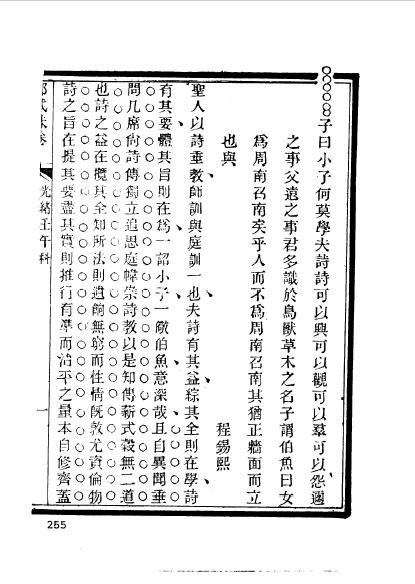 子曰小子何莫學夫詩詩可以興可以觀可以羣可以怨邇
之事父遠之事君多識於鳥獸草木之名子謂伯魚曰女
爲周南召南矣乎人而不爲周南召南其猶正牆面而立
也與
程錫熙
聖人以詩垂教師訓與庭訓一也夫詩有其益綜其全則在學詩
有其要體其旨則在爲一詔小子一儆伯魚意深哉且自異聞垂
問几席尚詩傳獨立追思庭幃崇詩教以是知傳薪式穀無二道
也詩之益在攬其全知所法則遺餉無窮而性情旣敦尤資倫物
詩之旨在提其要盡其實則推行有準而治平之量本自修齊蓋
卷
光緒壬午科
一
255